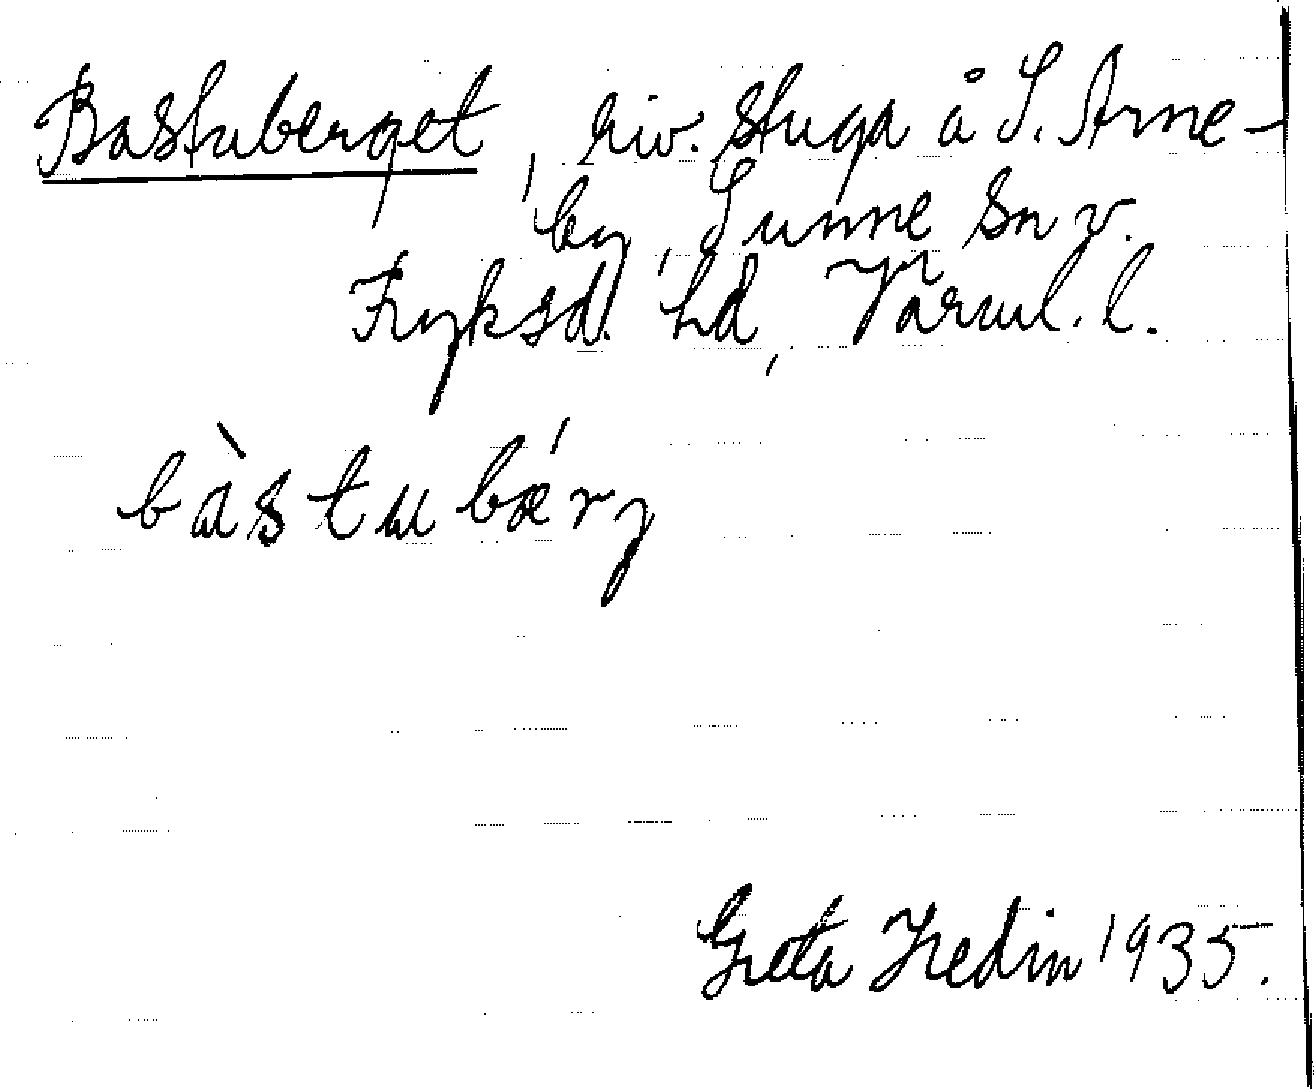 Bastuberget, riv. stuga å S. Arne-
by, Sunne sn v.
Fryksd. hd, Värml. l.
bàstubǽrj
Greta Hedin 1935.